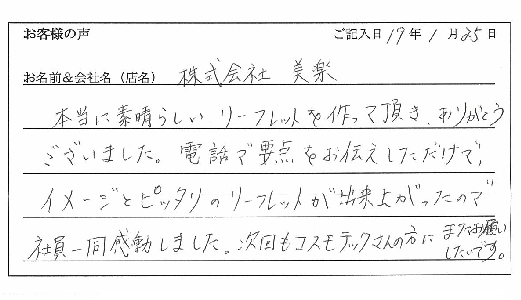 お客様の声 ご記入日 19年 1月 25日
お名前&会社名（店名） 株式会社 美楽
本当に素晴らしい リーフレットを作って頂き、ありがとう
ございました。電話で要点をお伝えしただけで、
イメージとピッタリのリーフレットが出来上がったので
社員一同感動しました。次回もコスモテックさんの方に またお願い
したいです。